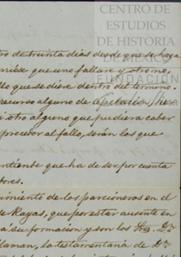 CENTRO DE
ESTUDIOS
DE HISTORIA
DE MÉXICO
FUNDACIÓN
ro de treinta dias desde que se haya
que uno fallare y otro no
llo que se diere dentro del termino
recurso alguno de apelacion
otro alguno que pudiera caber
proceder al fallo, serán los que
ndiente que ha de ser por cuenta
tores.
imiento de los parcioneros en el
de Rayas, que por estar ausente en
a su formacion y son los
llaman, la testamentaría de